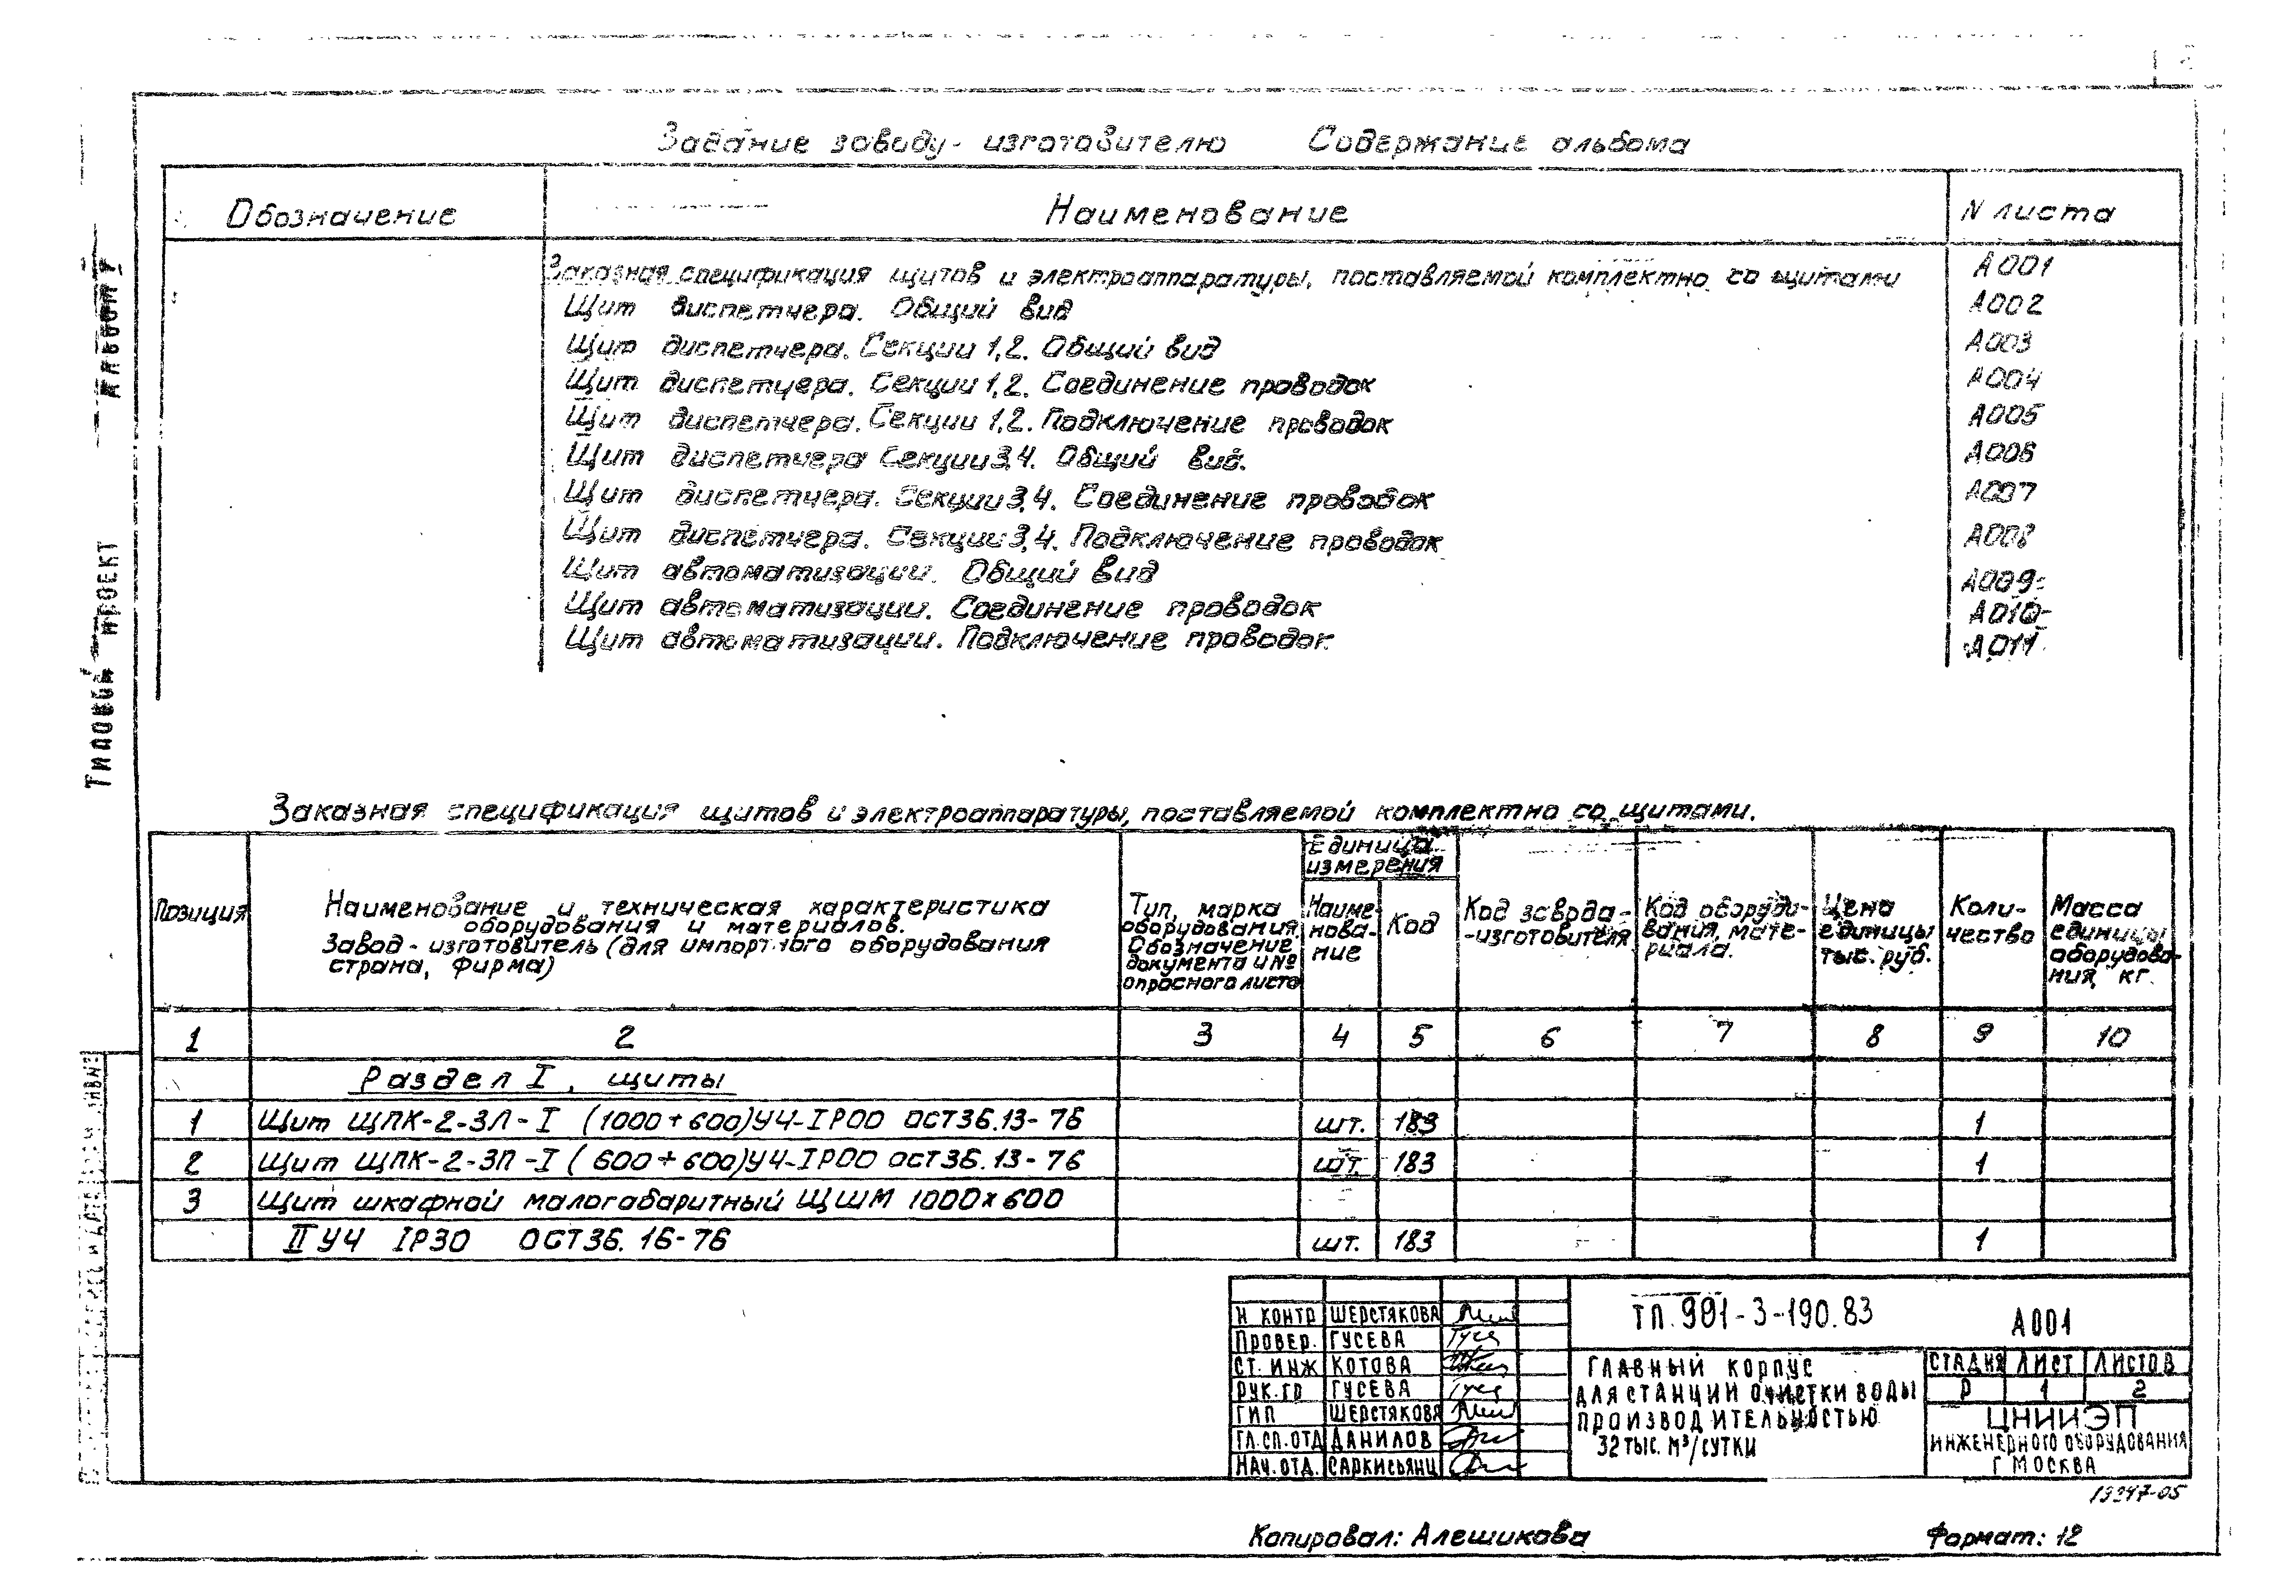 Задание заводу-изготовителю Содержание альбома
Обозначение Наименование N листа
Заказная спецификация щитов и электроаппаратуры, поставляемой комплектно со щитами А001
Щит диспетчера. Общий вид А002
Щит диспетчера. Секции 1,2. Общий вид А003
Щит диспетчера. Секции 1,2. Соединение проводок А004
Щит диспетчера. Секции 1,2. Подключение проводок А005
Щит диспетчера Секции 3,4. Общий вид. А006
Щит диспетчера. Секции 3,4. Соединение проводок А007
Щит диспетчера. Секции 3,4. Подключение проводок А008
Щит автоматизации. Общий вид А009
Щит автоматизации. Соединение проводок А010
Щит автоматизации. Подключение проводок А011
Типовой проект Альбом V
Заказная спецификация щитов и электроаппаратуры, поставляемой комплектно со щитами.
Позиция
Наименование и техническая характеристика
оборудования и материалов.
Завод-изготовитель (для импортного оборудования
страна, фирма)
Тип, марка
оборудования.
Обозначение
документа и №
опросного листа
Единица
измерения
Наиме-
нова-
ние
Код
Код завода-
-изготовителя
Код оборудо-
вания, мате-
риала.
Цена
единицы
тыс. руб.
Коли-
чество
Масса
единицы
оборудова-
ния, кг.
1 2 3 4 5 6 7 8 9 10
Раздел I, щиты
1 Щит ЩПК-2-ЗП-I (1000+600)У4-IP00 ОСТ36.13-76 шт. 183 1
2 Щит ЩПК-2-ЗП-I (600+600)У4-IP00 ОСТ36.13-76 шт. 183 1
3 Щит шкафной малогабаритный ЩШМ 1000х600
II У4 IP30 ОСТ36.16-76 шт. 183 1
Н контр Шерстякова
Провер. Гусева
Ст. инж Котова
Рук. гр Гусева
ГИП Шерстякова
Гл. сп. отд Данилов
Нач. отд. Саркисьянц
ТП.901-3-190.83 А001
Главный корпус
для станции очистки воды
производительностью
32 тыс. м³/сутки
Стадия Лист Листов
Р 1 2
ЦНИИЭП
инженерного оборудования
г Москва
19347-05
Копировал: Алешикова Формат: 12